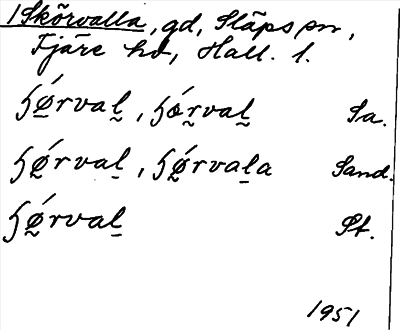 1 Skörvalla, gd, Släps sn,
Fjäre hd, Hall. l.
ɧǿ̠rval̰, ɧǿr̰val̰ Sa.
ɧǿ̰rval̠, ɧǿ̰rval̠a Sand.
ɧǿ̰rval̠ St.
1951